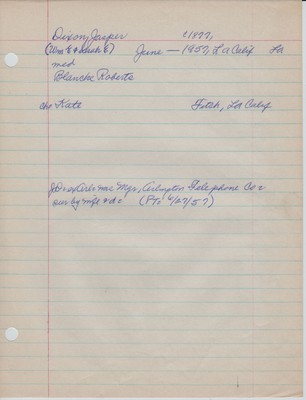 Dixon, Jasper c1877,
(Wm E & Sarah E) June — 1957, L A Calif
med
Blanche Roberts
che Kate Fitch, La Calif
Mgr, Arlington Telephone Co
sur by (PT. 6/27/57)